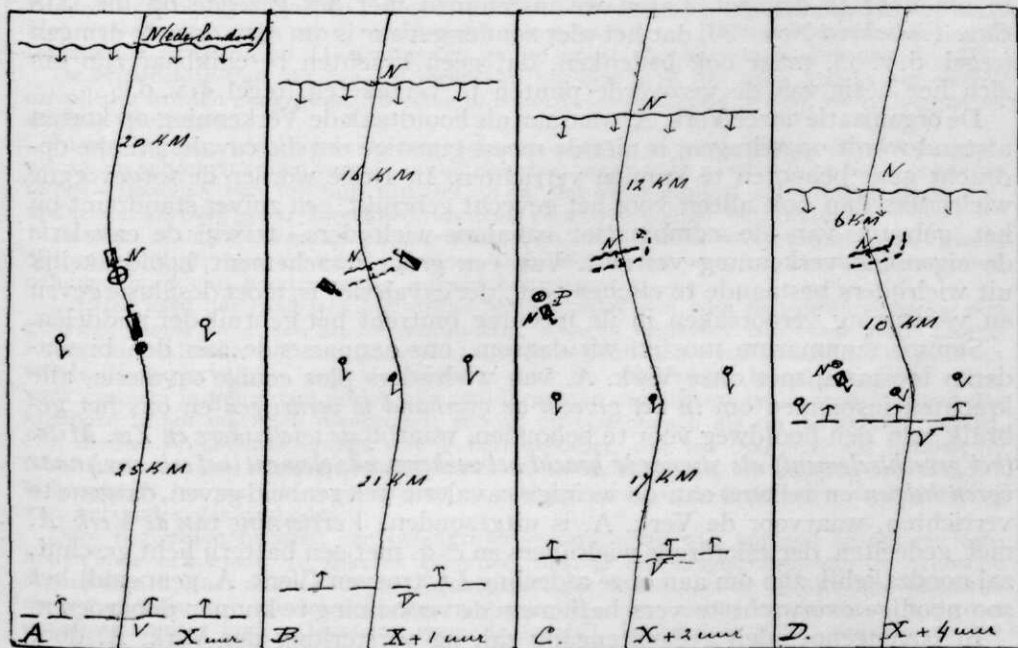 N(ederlander)
20 KM
N
V
V
35 KM
V
A
X uur
N
16 KM
N
V
V
21 KM
V
B
X+1 uur
N
12 KM
N
P
N
V
17 KM
V
C.
X+2 uur
N
6 KM
N
10 KM
N
V
V
D.
X+4 uur